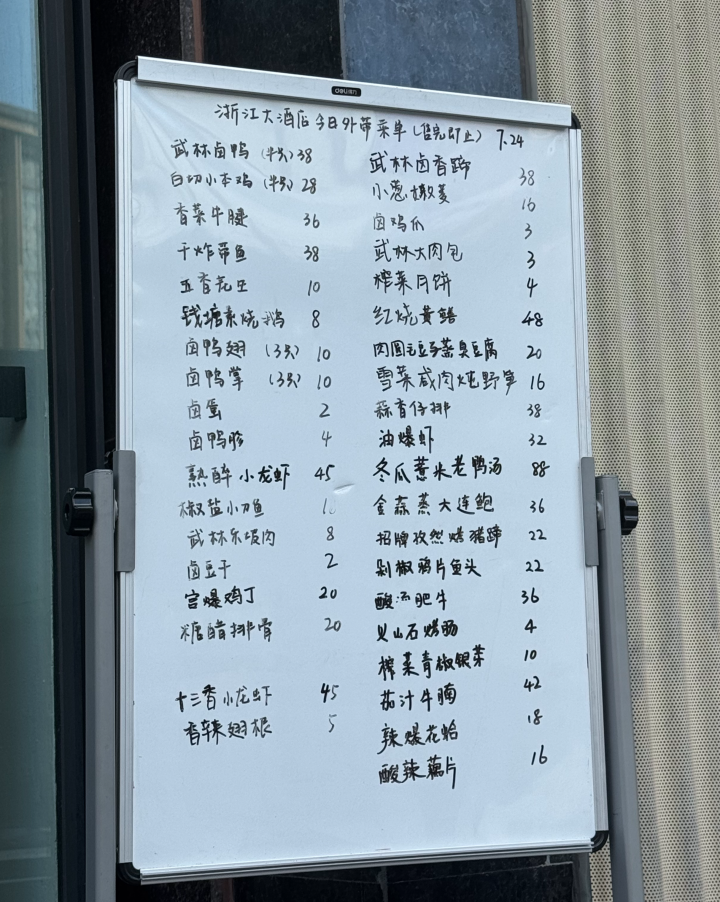 deli 得力
浙江大酒店今日外带菜单(售完即止) 7.24
武林卤鸭 (半只) 38
白切小本鸡 (半只) 28
香菜牛腱 36
干炸带鱼 38
五香花生 10
钱塘素烧鹅 8
卤鸭翅 (3只) 10
卤鸭掌 (3只) 10
卤蛋 2
卤鸭胗 4
熟醉小龙虾 45
椒盐小刀鱼
武林东坡肉 8
卤豆干 2
宫爆鸡丁 20
糖醋排骨 20
十三香小龙虾 45
香辣翅根 5
武林卤香蹄 38
小葱嫩姜 16
卤鸡爪 3
武林大肉包 3
榨菜月饼 4
红烧黄鳝 48
肉圆毛豆蒸臭豆腐 20
雪菜咸肉炖野笋 16
蒜香仔排 38
油爆虾 32
冬瓜薏米老鸭汤 88
金蒜蒸大连鲍 36
招牌孜然烤猪蹄 22
剁椒鸦片鱼头 22
酸汤肥牛 36
火山石烤肠 4
榨菜青椒银芽 10
茄汁牛腩 42
辣爆花蛤 18
酸辣藕片 16